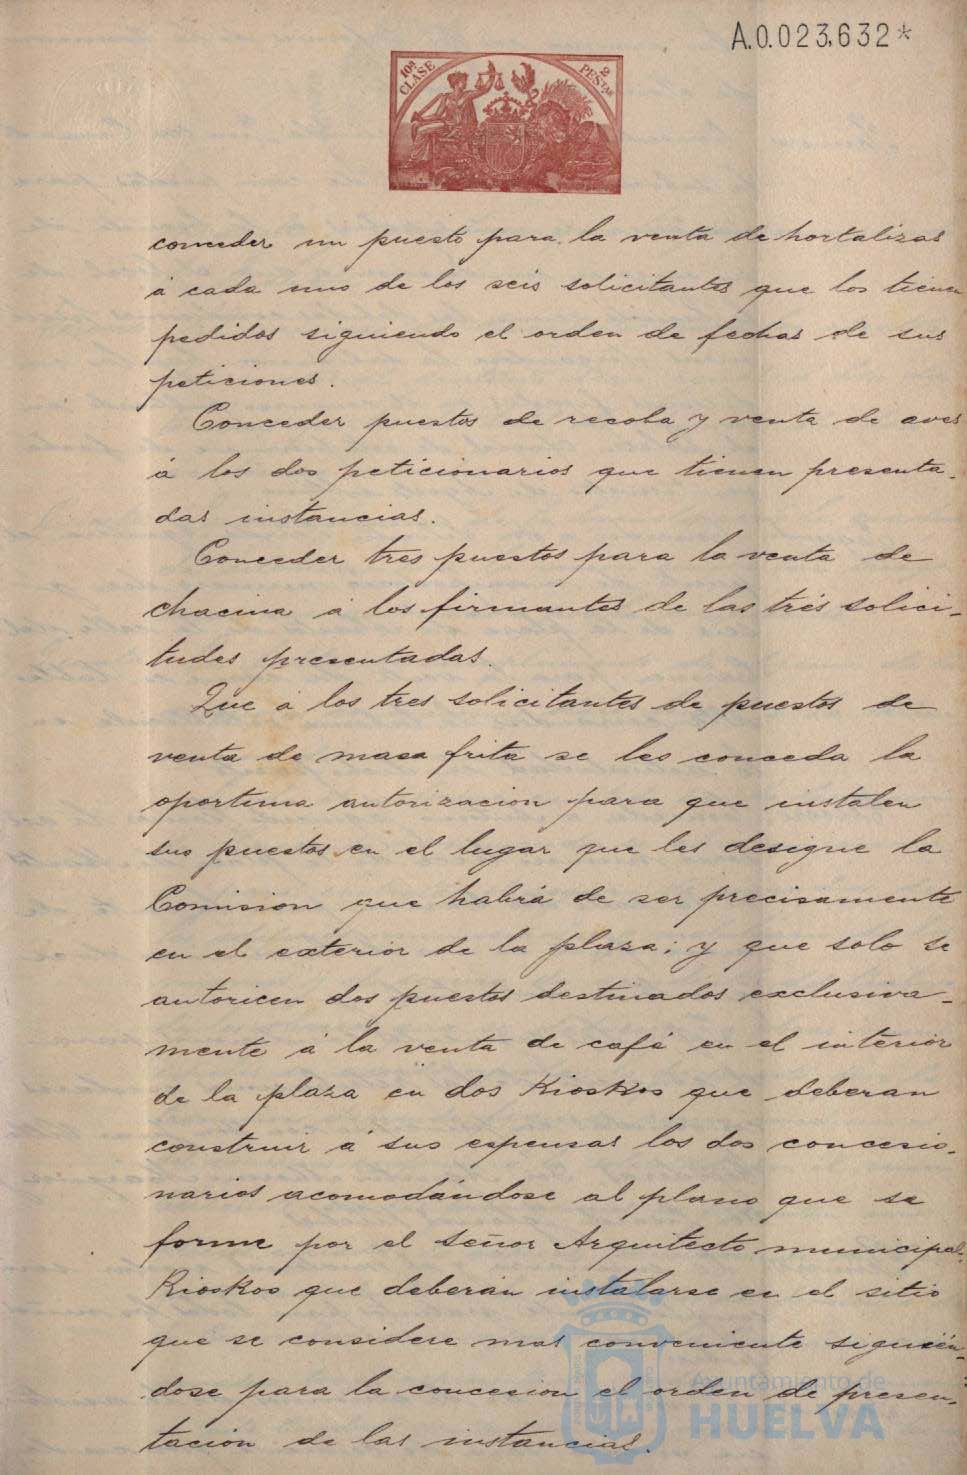 A.0.023,632*
10ª CLASE
2 PESTAS
conceder un puesto para la venta de hortalizas
á cada uno de los seis solicitantes que los tienen
pedidos siguiendo el orden de fechas de sus
peticiones.
Conceder puestos de recoba y venta de aves
á los dos peticionarios que tienen presenta-
das instancias.
Conceder tres puestos para la venta de
chacina á los firmantes de las trés solici-
tudes presentadas.
Que á los tres solicitantes de puestos de
venta de masa frita se les conceda la
oportuna autorizacion para que instalen
sus puestos en el lugar que les designe la
Comision que habrá de ser precisamente
en el exterior de la plaza; y que solo se
autoricen dos puestos destinados exclusiva-
mente á la venta de café en el interior
de la plaza en dos Kioskos que deberan
construir á sus espensas los dos concesio-
narios acomodándose al plano que se
forme por el señor Arquitecto municipal.
Kioskos que deberán instalarse en el sitio
que se considere mas conveniente siguién-
dose para la concesion el orden de presen-
tacion de las instancias.
Ayuntamiento de
HUELVA